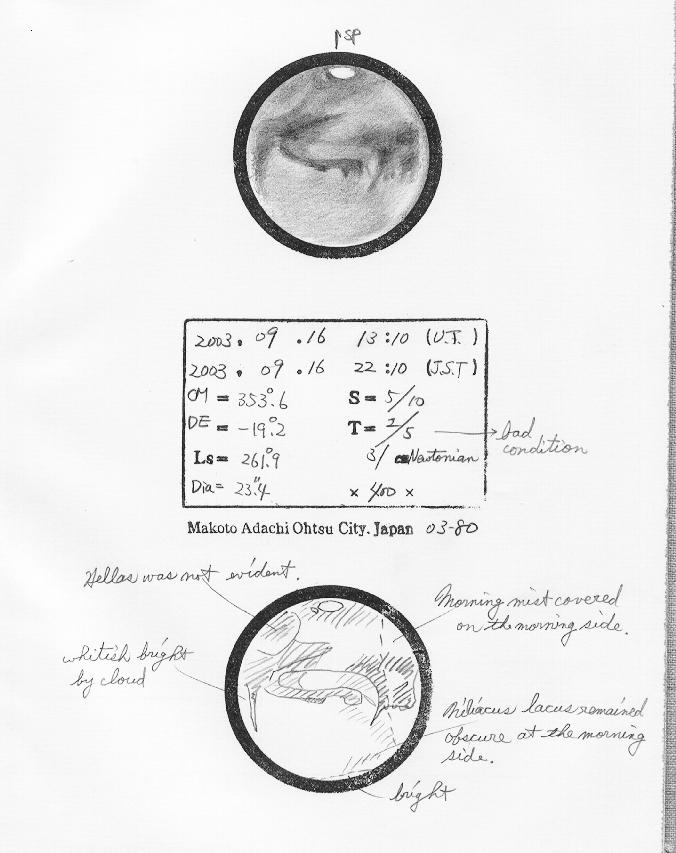 SP
2003. 09 .16 13:10 (U.T.)
2003. 09 .16 22:10 (J.S.T)
CM = 353°.6 S = 5/10
DE = -19°.2 T = 2/5 → bad condition
Ls = 261°.9 31 cm Newtonian
Dia = 23".4 × 400 ×
Makoto Adachi Ohtsu City. Japan 03-80
Hellas was not evident.
Morning mist covered
on the morning side.
whitish bright
by cloud
Niliacus lacus remained
obscure at the morning
side.
bright